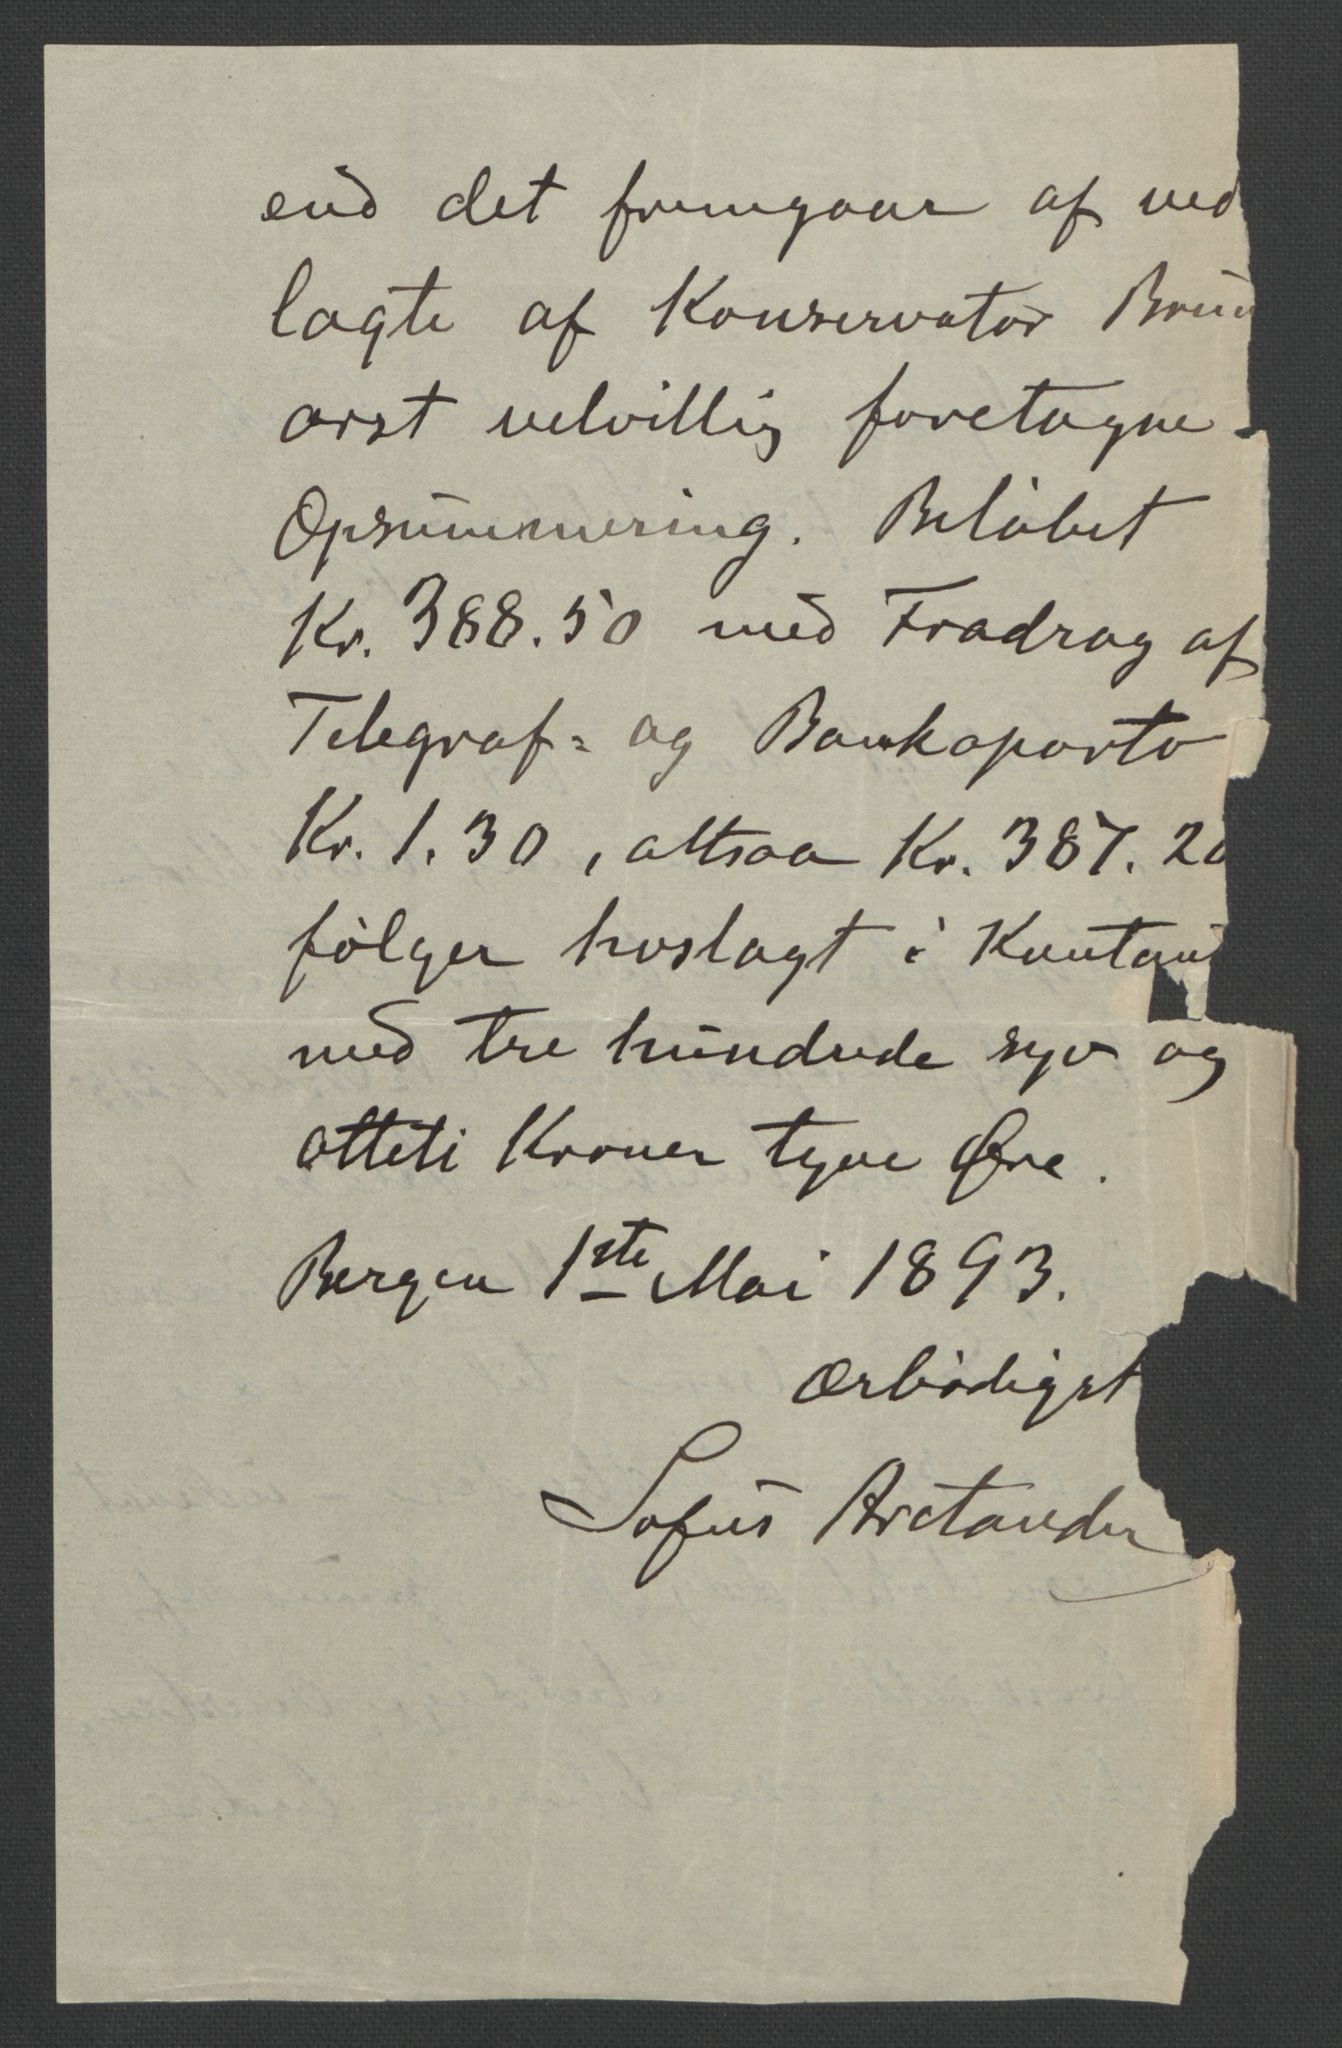 end det fremgaar af ved
lagte af Konservator Brun
orst velvillig foretagne
Opsummering. Beløbet
Kr. 388.50 med Fradrag af
Telegraf- og Bankoporto
Kr. 1.30, altsaa Kr. 387.20
følger hoslagt i Kontant
med tre hundrede syv og
otteti Kroner tyve Øre.
Bergen 1ste Mai 1893.
Ærbødigst
Sofus Arctander